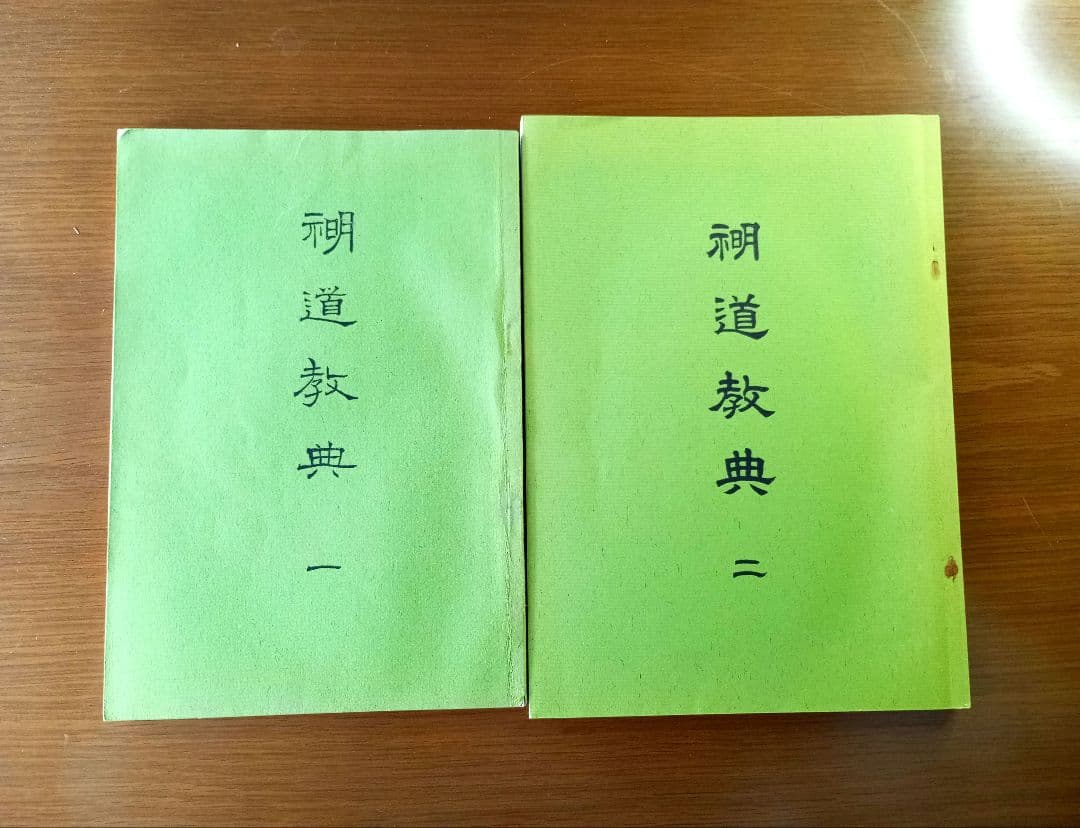 道教典 一
道教典 二